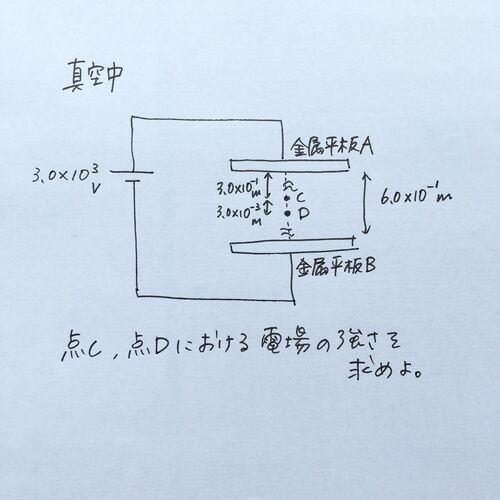 真空中
金属平板A
3.0×10³
V
3.0×10⁻¹
m
C
3.0×10⁻³
m
D
6.0×10⁻¹
m
金属平板B
点C,点Dにおける電場の強さを
求めよ。